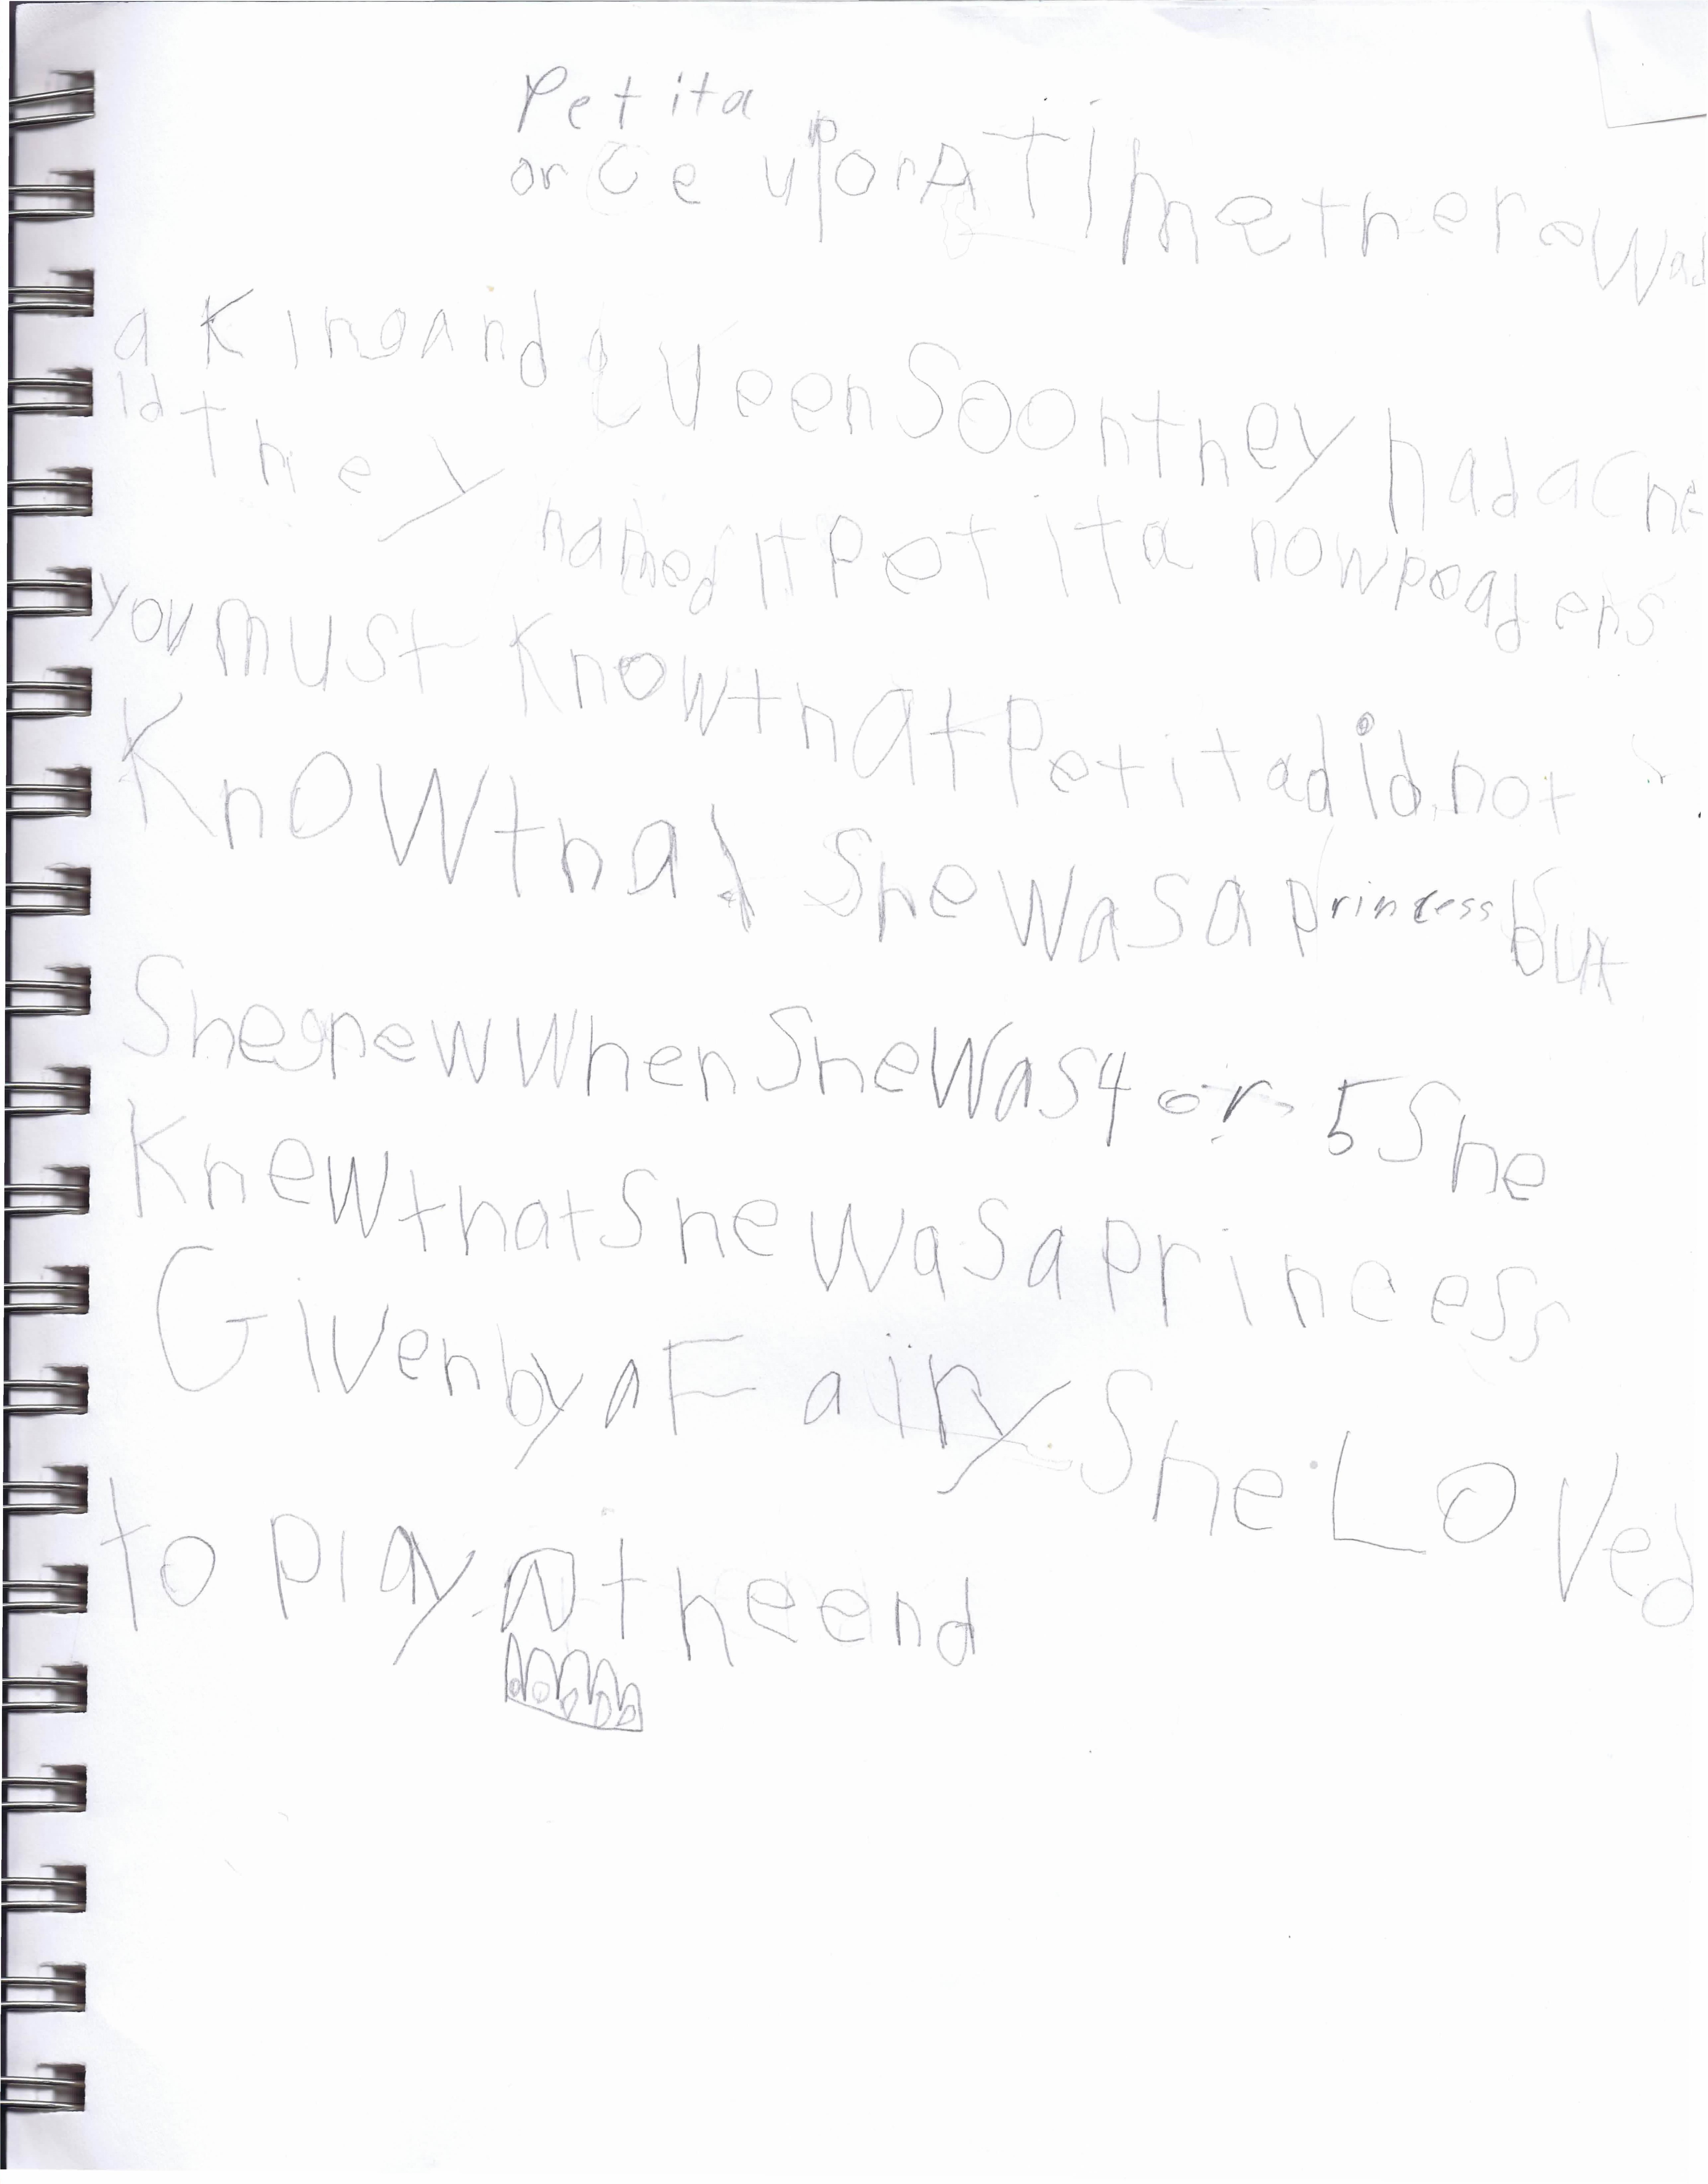 Petita
once upon A TIme there was
a KingAnd QUeen Soon they had a che
ld they named It Petita now peaders
you must Know that Petita did not
Know that She was a princess but
She grew When She Was 4 or 5 She
Knew that She was a princess
Given by a Fairy She LOVed
to play the end